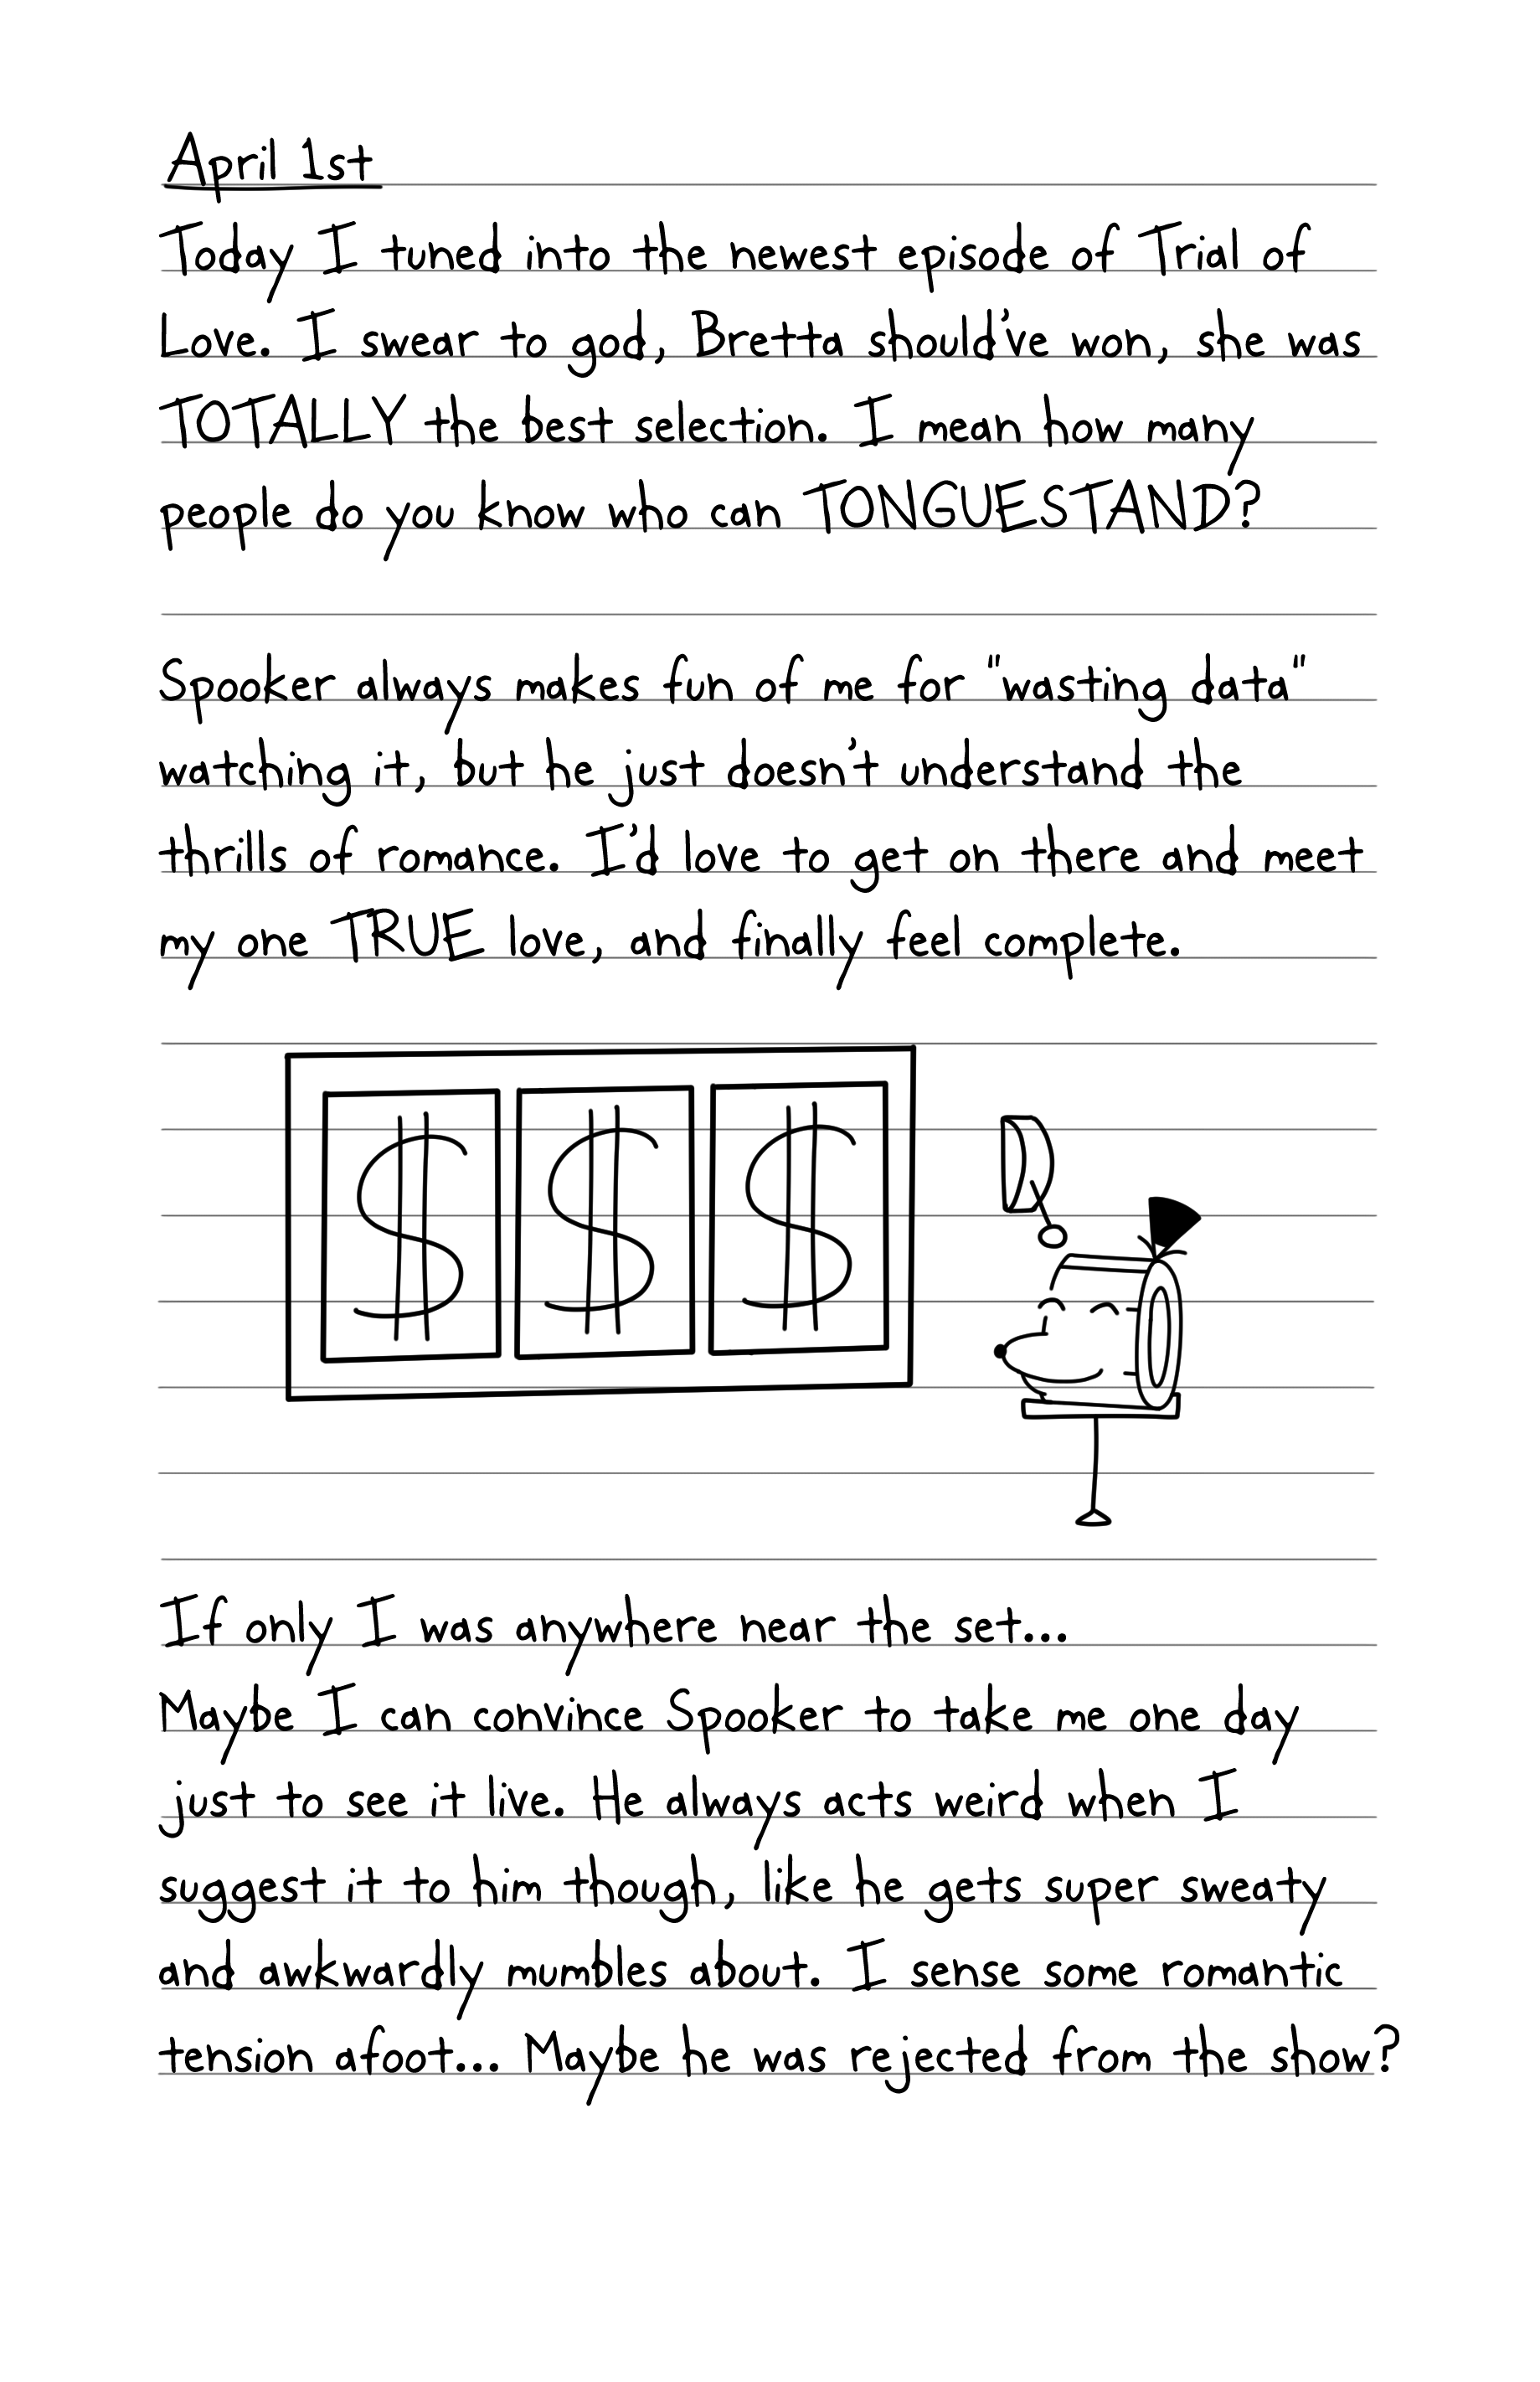 April 1st
Today I tuned into the newest episode of Trial of
Love. I swear to god, Bretta should've won, she was
TOTALLY the best selection. I mean how many
people do you know who can TONGUESTAND?
Spooker always makes fun of me for "wasting data"
watching it, but he just doesn't understand the
thrills of romance. I'd love to get on there and meet
my one TRUE love, and finally feel complete.
$ $ $
If only I was anywhere near the set...
Maybe I can convince Spooker to take me one day
just to see it live. He always acts weird when I
suggest it to him though, like he gets super sweaty
and awkwardly mumbles about. I sense some romantic
tension afoot... Maybe he was rejected from the show?